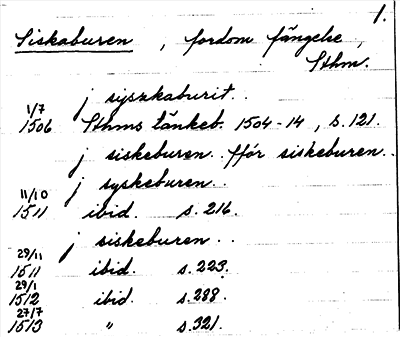 1.
Siskaburen, fordom fängelse,
Sthm.
j syszkaburit..
1/7
1506 Sthms tänkeb. 1504-14, s. 121.
j siskeburen.. ffór siskeburen..
j syskeburen..
11/10
1511 ibid. s. 216.
j siskeburen..
29/11
1511 ibid. s. 223.
29/1
1512 ibid. s. 288.
27/7
1513 " s. 321.